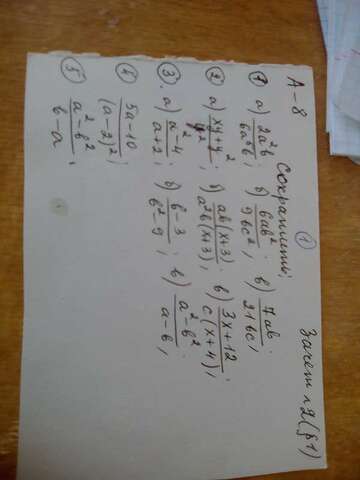 А-8 ① Зачет №2 (§1)
Сократить:
① а) 2a²b / 6a³b ; б) 6ab² / 9bc² ; в) 7ab / 21bc ;
② а) xy+y² / y² ; б) ab(x+3) / a²b(x+3) ; в) 3x+12 / c(x+4) ;
③ а) a²-4 / a+2 ; б) b-3 / b²-9 ; в) a²-b² / a-b ;
④ 5a-10 / (a-2)² ;
⑤ a²-b² / b-a .